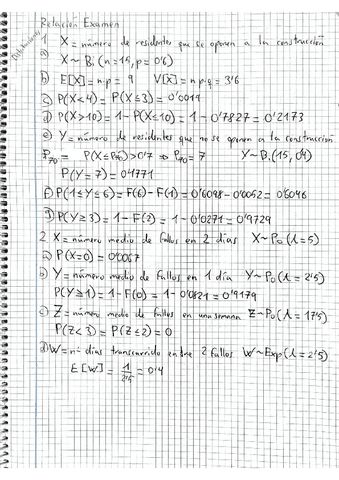 Relación Examen
Distribuciones
1 X = número de residentes que se oponen a la construcción
a) X ~ B. (n = 15, p = 0'6)
b) E[X] = n·p = 9 V[X] = n·p·q = 3'6
c) P(X<4) = P(X≤3) = 0'0019
d) P(X>10) = 1 - P(X≤10) = 1 - 0'7827 = 0'2173
e) Y = número de residentes que no se oponen a la construcción
P70 = P(X≤P70) > 0'7 → P70 = 7 Y ~ B. (15, 0'4)
P(Y = 7) = 0'1771
f) P(1≤Y≤6) = F(6) - F(1) = 0'6098 - 0'0052 = 0'6046
g) P(Y≥3) = 1 - F(2) = 1 - 0'0271 = 0'9729
2 X = número medio de fallos en 2 días X ~ Po (λ = 5)
a) P(X=0) = 0'0067
b) Y = número medio de fallos en 1 día Y ~ Po (λ = 2'5)
P(Y≥1) = 1 - F(0) = 1 - 0'0821 = 0'9179
c) Z = número medio de fallos en una semana Z ~ Po (λ = 17'5)
P(Z<3) = P(Z≤2) = 0
d) W = nº días transcurrido entre 2 fallos W ~ Exp (λ = 2'5)
E[W] = 1/2'5 = 0'4